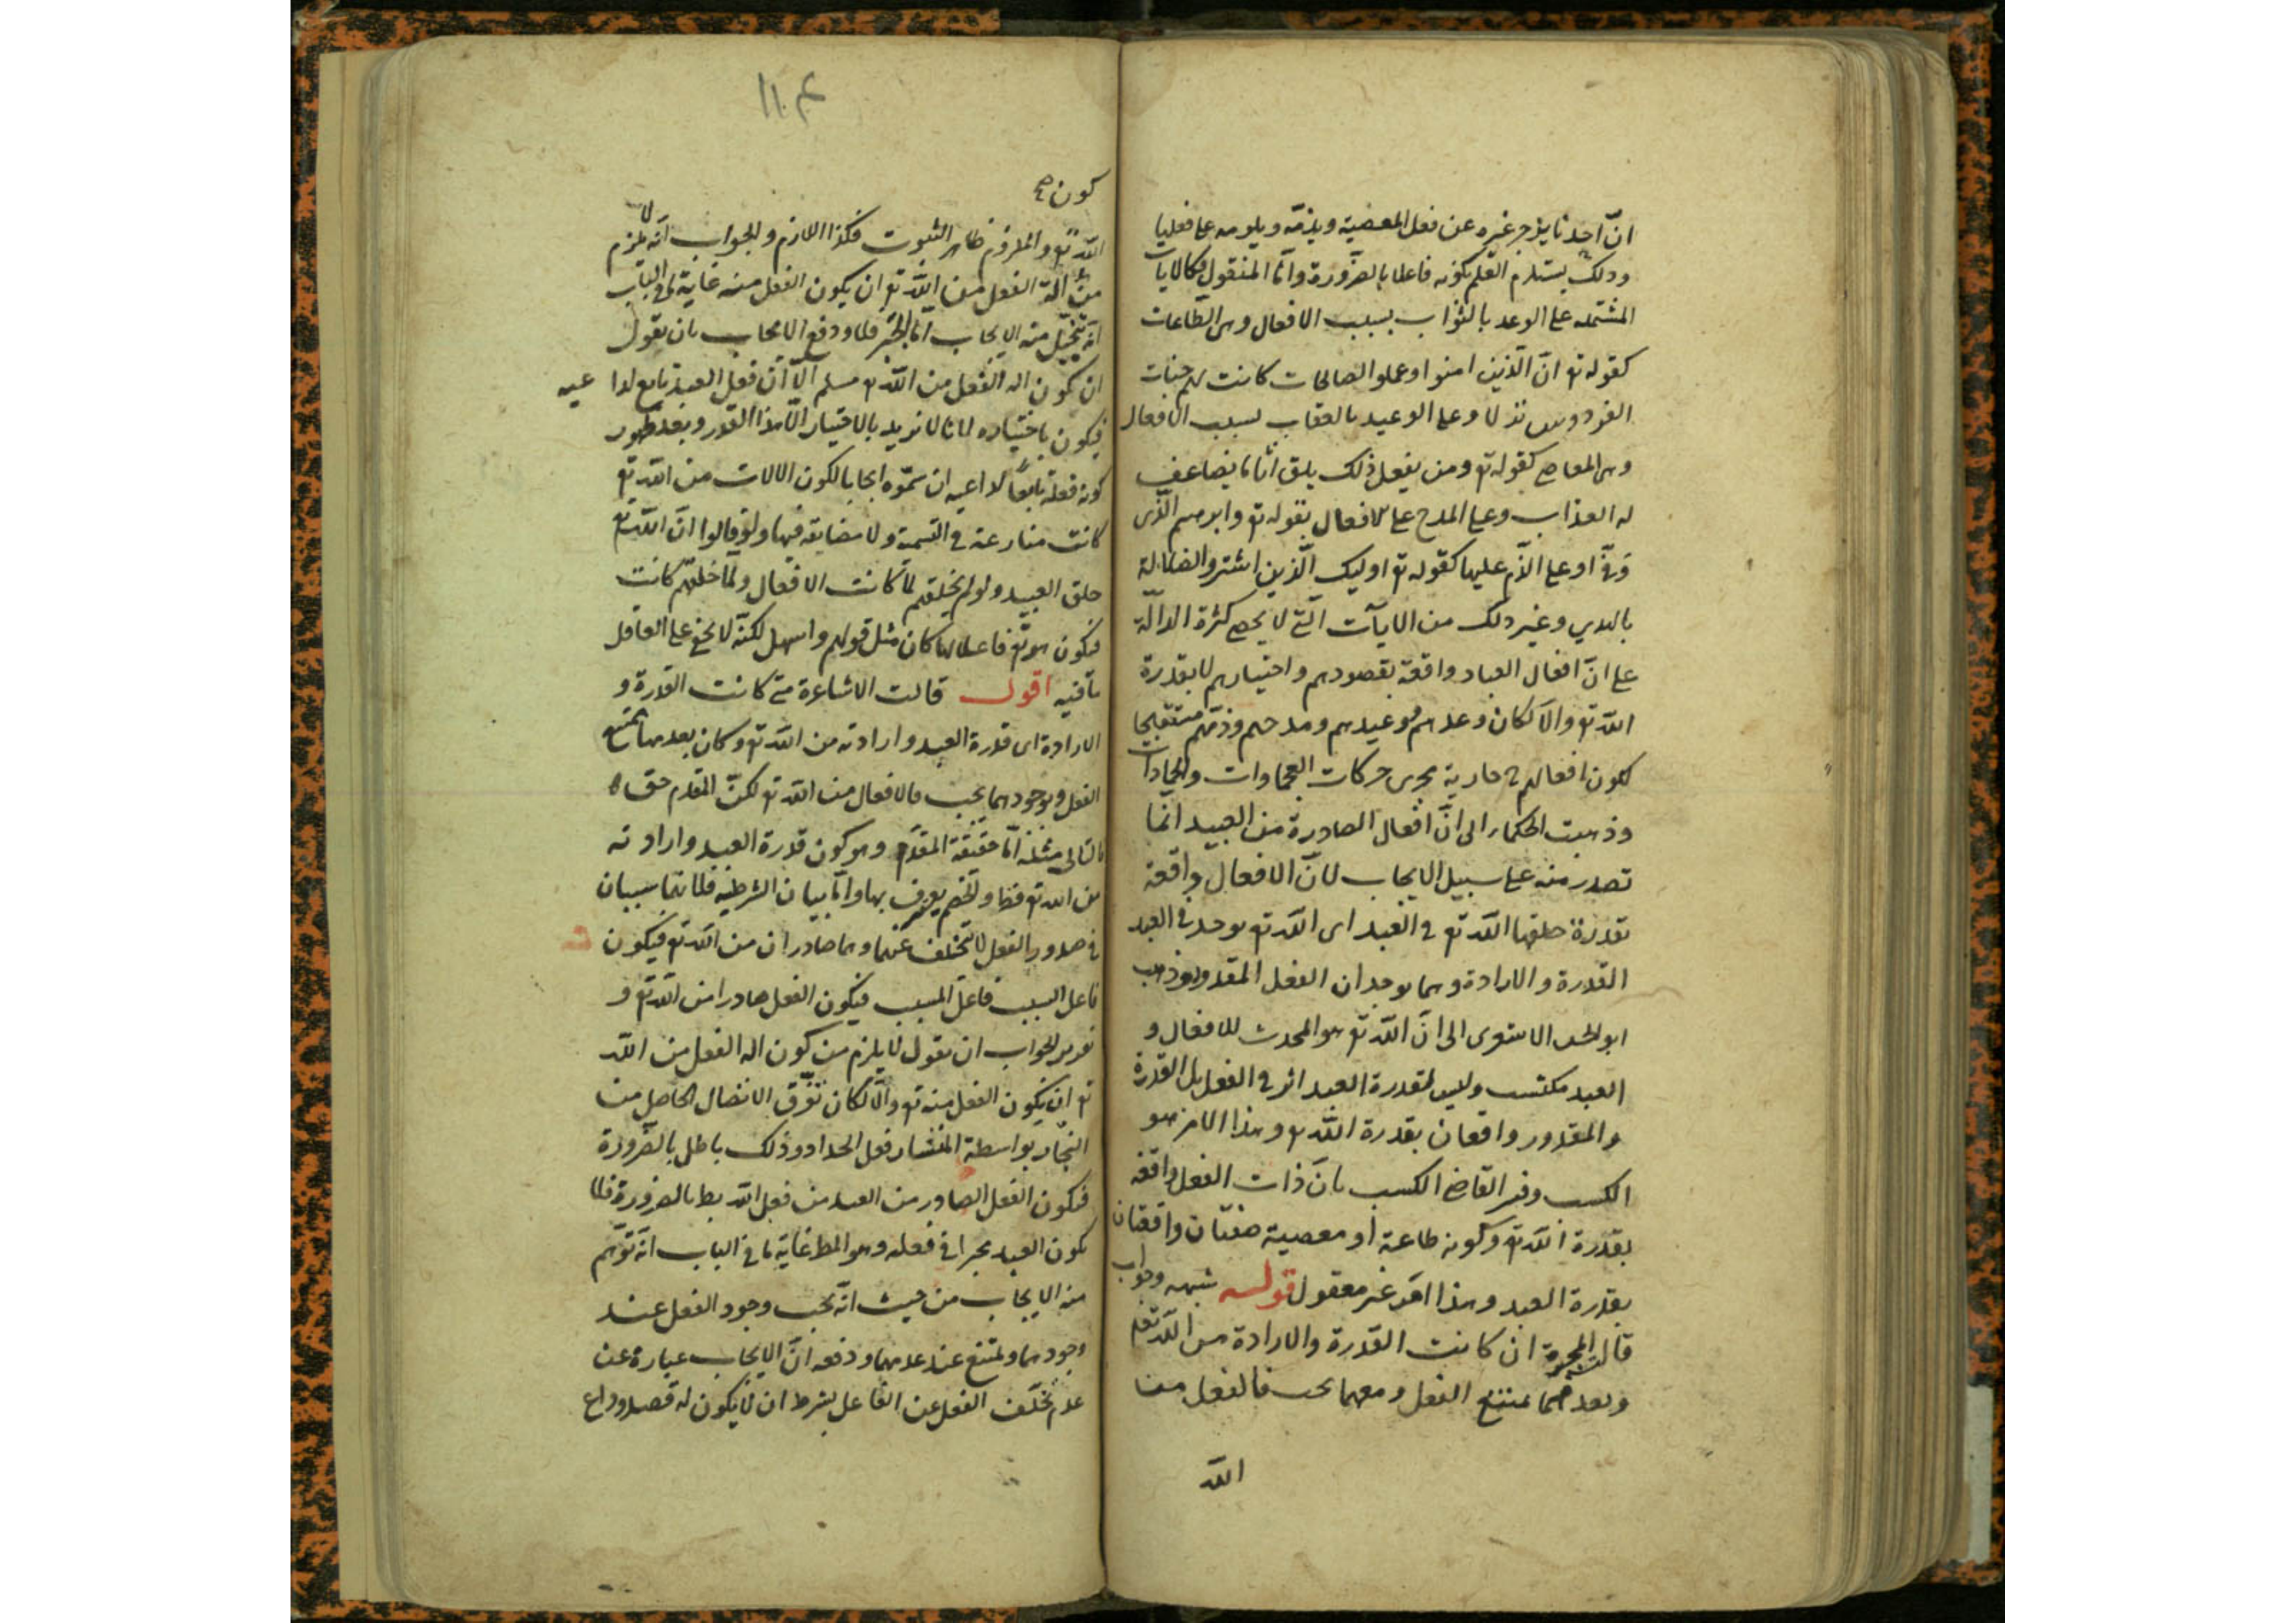 انّ احدنا يزجر غيره عن فعل المعصية ويذمّه ويلومه على فعلها
وذلك يستلزم العلم بكونه فاعلا بالضّرورة وامّا المنقول فكالايات
المشتملة على الوعد بالثواب بسبب الافعال وهى الطّاعات
كقوله تع انّ الّذين امنوا وعملوا الصالحات كانت لهم جنات
الفردوس نزلا وعلى الوعيد بالعقاب بسبب الافعال
وهى المعاصى كقوله تع ومن يفعل ذلك يلق اثاما يضاعف
له العذاب وعلى المدح على الافعال بقوله تع وابرهيم الّذى
وفّى او على الذّم عليها كقوله تع اوليك الّذين اشتروا الضلالة
بالهدي وغير ذلك من الايآت الّتى لا يحصى كثرة الدالّة
على انّ افعال العباد واقعة بقصودهم واختيارهم لا بقدرة
اللّه تع والّا لكان وعدهم ووعيدهم ومدحهم وذمّهم قبيحا
لكون افعالهم ح جارية مجرى حركات العجماوات والجمادات
وذهبت الحكماء الى انّ افعال الصادرة من العبيد انّما
تصدر منه على سبيل الايجاب لانّ الافعال واقعة
بقدرة خلقها اللّه تع فى العبد اى اللّه تع يوجد فى العبد
القدرة والارادة وهما يوجدان الفعل المقدور وذهب
ابو الحسن الاشعرى الى انّ اللّه تع هو المحدث للافعال و
العبد مكتسب وليس لقدرة العبد اثر فى الفعل بل القدرة
والمقدور واقعان بقدرة اللّه تع وهذا الامر هو
الكسب وفسر القاضى الكسب بانّ ذات الفعل واقعة
بقدرة اللّه تع وكونه طاعة او معصية صفتان واقعتان
بقدرة العبد وهذا امر غير معقول قوله شبهه وجواب
قالت المجبرة ان كانت القدرة والارادة من اللّه تع
وبعدمهما يمتنع الفعل ومعهما يجب فالفعل من
اللّه
١١٠
كون صح
اللّه تع والملزوم ظاهر الثبوت فكذا اللازم والجواب انّه لا يلزم
من آلة الفعل من اللّه تع ان يكون الفعل منه غاية ما فى الباب
انّه يتخيّل منه الايجاب امّا الجبر فلا ودفع الايجاب بان نقول
ان كون اله الفعل من اللّه تع مسلم الّا انّ فعل العبد تابع لداعيه
فيكون باختياره لانا لا نريد بالاختيار الّا هذا القدر وبعد ظهور
كون فعله تابعًا لداعيه ان سمّوه ايجابا لكون الالات من اللّه تع
كانت منازعة فى التسمية ولا مضايقة فيها ولو قالوا انّ اللّه تع
خلق العبيد ولو لم يخلقهم لما كانت الافعال ولما خلقهم كانت
فيكون هو تع فاعلا لها كان مثل قولهم واسهل لكنّه لا يخفى على العاقل
ما فيه اقول قالت الاشاعرة متى كانت القدرة و
الارادة اى قدرة العبد وارادته من اللّه تع وكان بعدمهما يمتنع
الفعل وبوجودهما يجب فالافعال من اللّه تع لكنّ المقدم حق
فالتالى مثله امّا حقيقة المقدّم وهو كون قدرة العبد وارادته
من اللّه تع فظ والخصم يعترف بها وامّا بيان الشرطية فلانهما سببان
فى صدور الفعل لا يتخلّف عنهما وهما صادران من اللّه تع فيكون
فاعل السبب فاعل المسبب فيكون الفعل صادرا من اللّه تع و
تقرير الجواب ان نقول لا يلزم من كون اله الفعل من اللّه
تع ان يكون الفعل منه تع والّا لكان تفرّق الاتصال الحاصل من
النجّار بواسطة المنشار فعل الحداد وذلك باطل بالضّرورة
فكون الفعل الصادر من العبد من فعل اللّه بط بالضرورة فلا
يكون العبد مجبرا فى فعله وهو المط غاية ما فى الباب انّه توهّم
منه الايجاب من حيث انّه يجب وجود الفعل عند
وجودهما ويمتنع عند عدمهما ودفعه انّ الايجاب عبارة عن
عدم تخلّف الفعل عن الفاعل بشرط ان لا يكون له قصد وداع